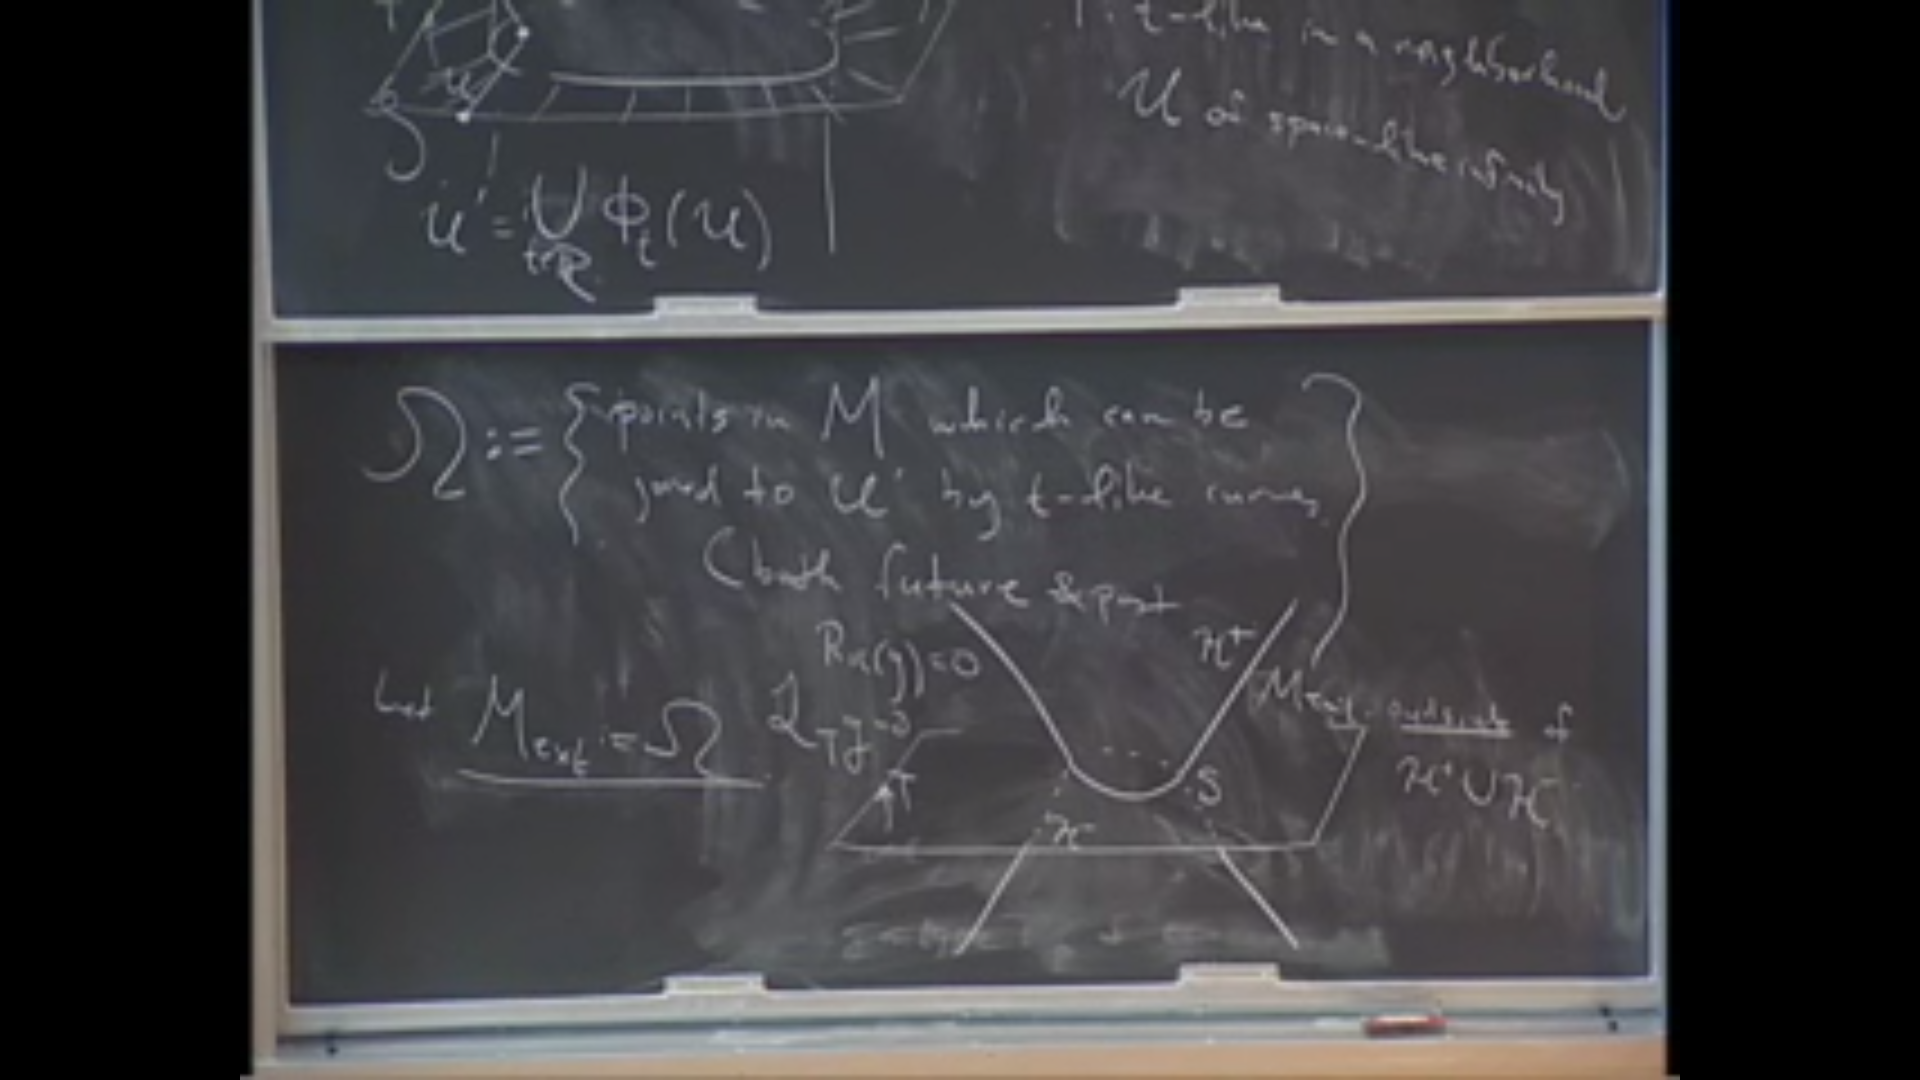 T: t-like in a neighborhood
U of space-like infinity
U
U' = ∪ Φ_t(U)
t∈R
Ω := { points in M which can be
joined to U' by t-like curves
(both future & past }
Ric(g) = 0
H⁺
Let M_ext := Ω
L_T g = 0
M_ext outside of
H⁺ ∪ H⁻
T
S
H⁻